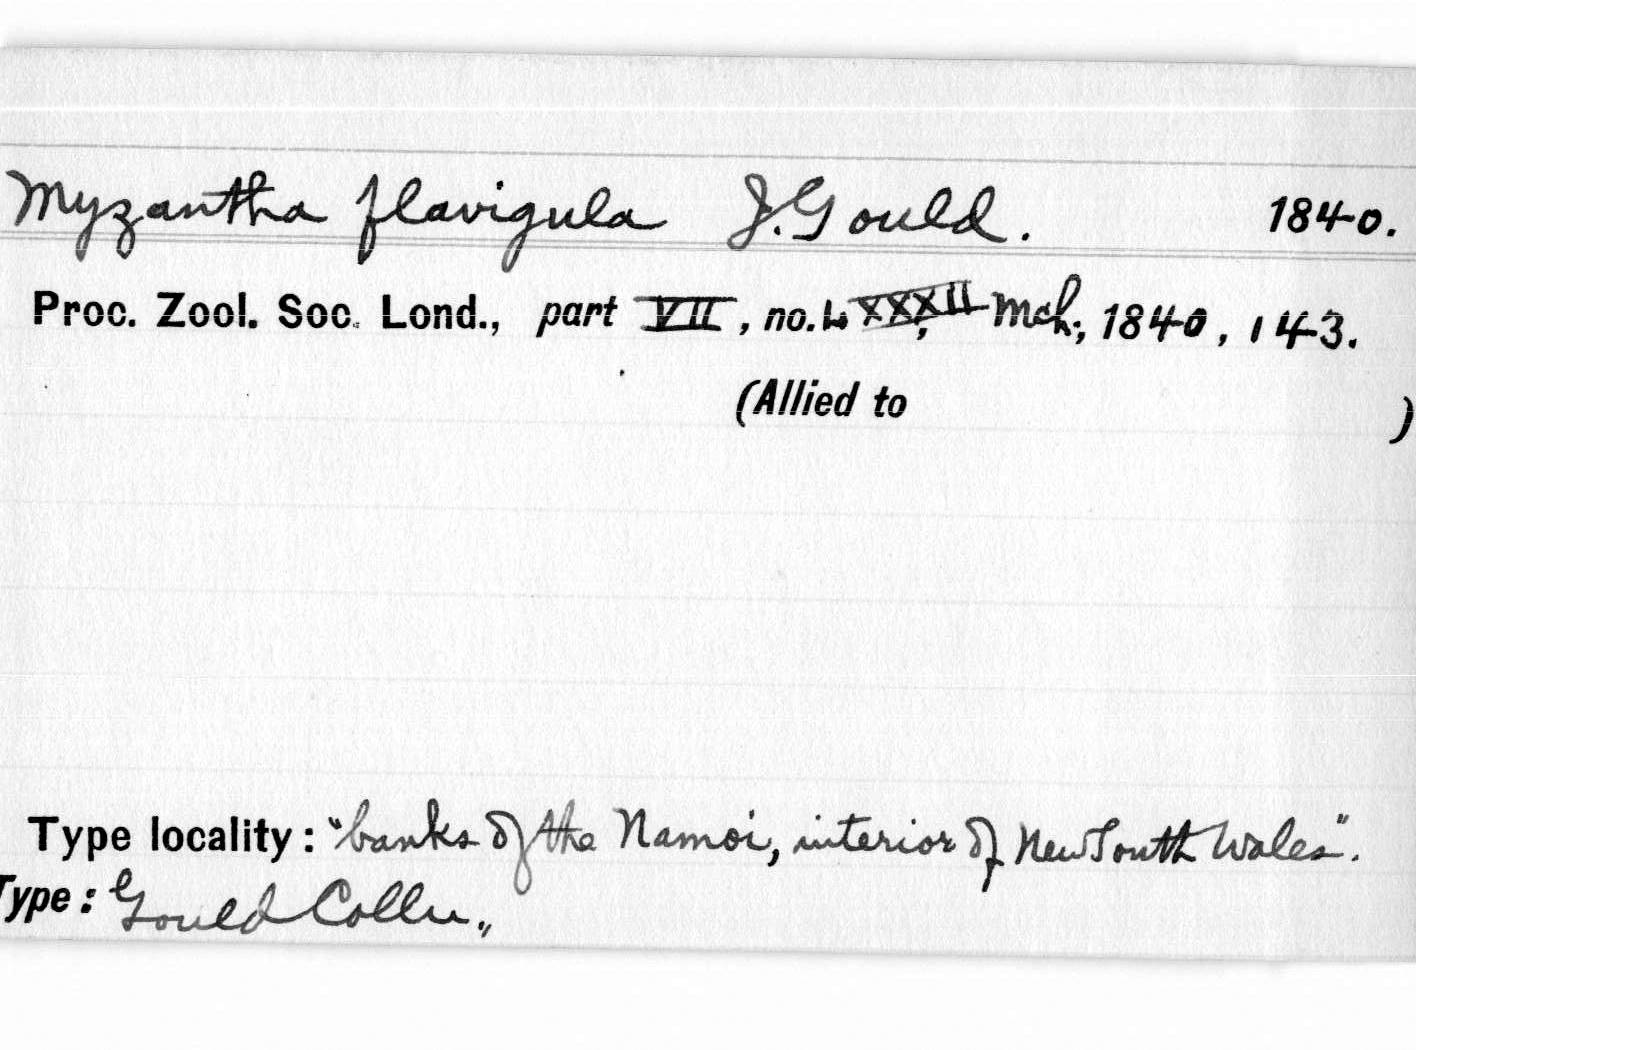 Myzantha flavigula J. Gould. 1840.
Proc. Zool. Soc. Lond., part VII, no. LXXXII, Mch., 1840, 143.
(Allied to )
Type locality: "banks of the Namoi, interior of New South Wales".
Type: Gould Colln.,